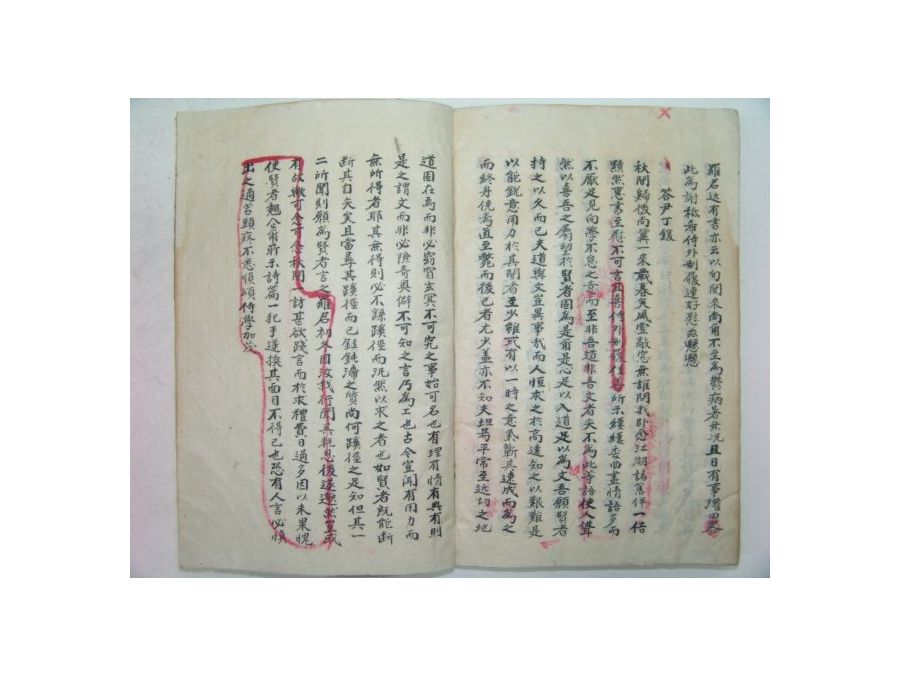 羅君送有書亦云以旬間來尚爾不至為鬱病暑無況且日有事
此為謝秪希侍外制履連好慰玆懸懸
答尹丁鍰
秋間歸後尚冀一來歲暮矣風雪敲窓無誰問我卧念江湖諸舊伴一倍
黯然惠書至慰不可言況喜侍外制履佳善所示縷縷委曲盡情語多而
不厭足見向學不息之意而至非吾道非吾文者矣不為此等語使人聳
然以喜吾之屬望於賢者固為是爾是心足以入道足以為文吾願賢者
持之以久而已夫道與文豈異事哉而人恒求之於高遠知之以艱難是
以能銳意用力於其間者至少雖或有以一時之意氣蘄其速成而為之
而終舟德濡直至斃而後已者尤少盖亦不知夫坦易平常至近切之地
道固在焉而非必窈窅玄冥不可究之事始可名也有理有情有典有則
是之謂文而非必險奇奧僻不可知之言乃為工也古今豈聞有用力而
無所得者耶其無得則必不繇蹊徑而汎然以求之者也如賢者既能斷
斷其自矢矣且當尋其蹊徑而已銈鈍滯之質尚何蹊徑之足知但其一
二所聞則願為賢者言之羅君初冬因汝我行聞其耗息後遂邈然豈或
有故耶可念可念秋間一訪甚欲踐言而於求禮費日過多因以未果愧
使賢者翹企爾所示詩篇一犯手遂換其面目不得已也恐有人言必慎
出之適苦頭疼不悉惟頌侍學加茂